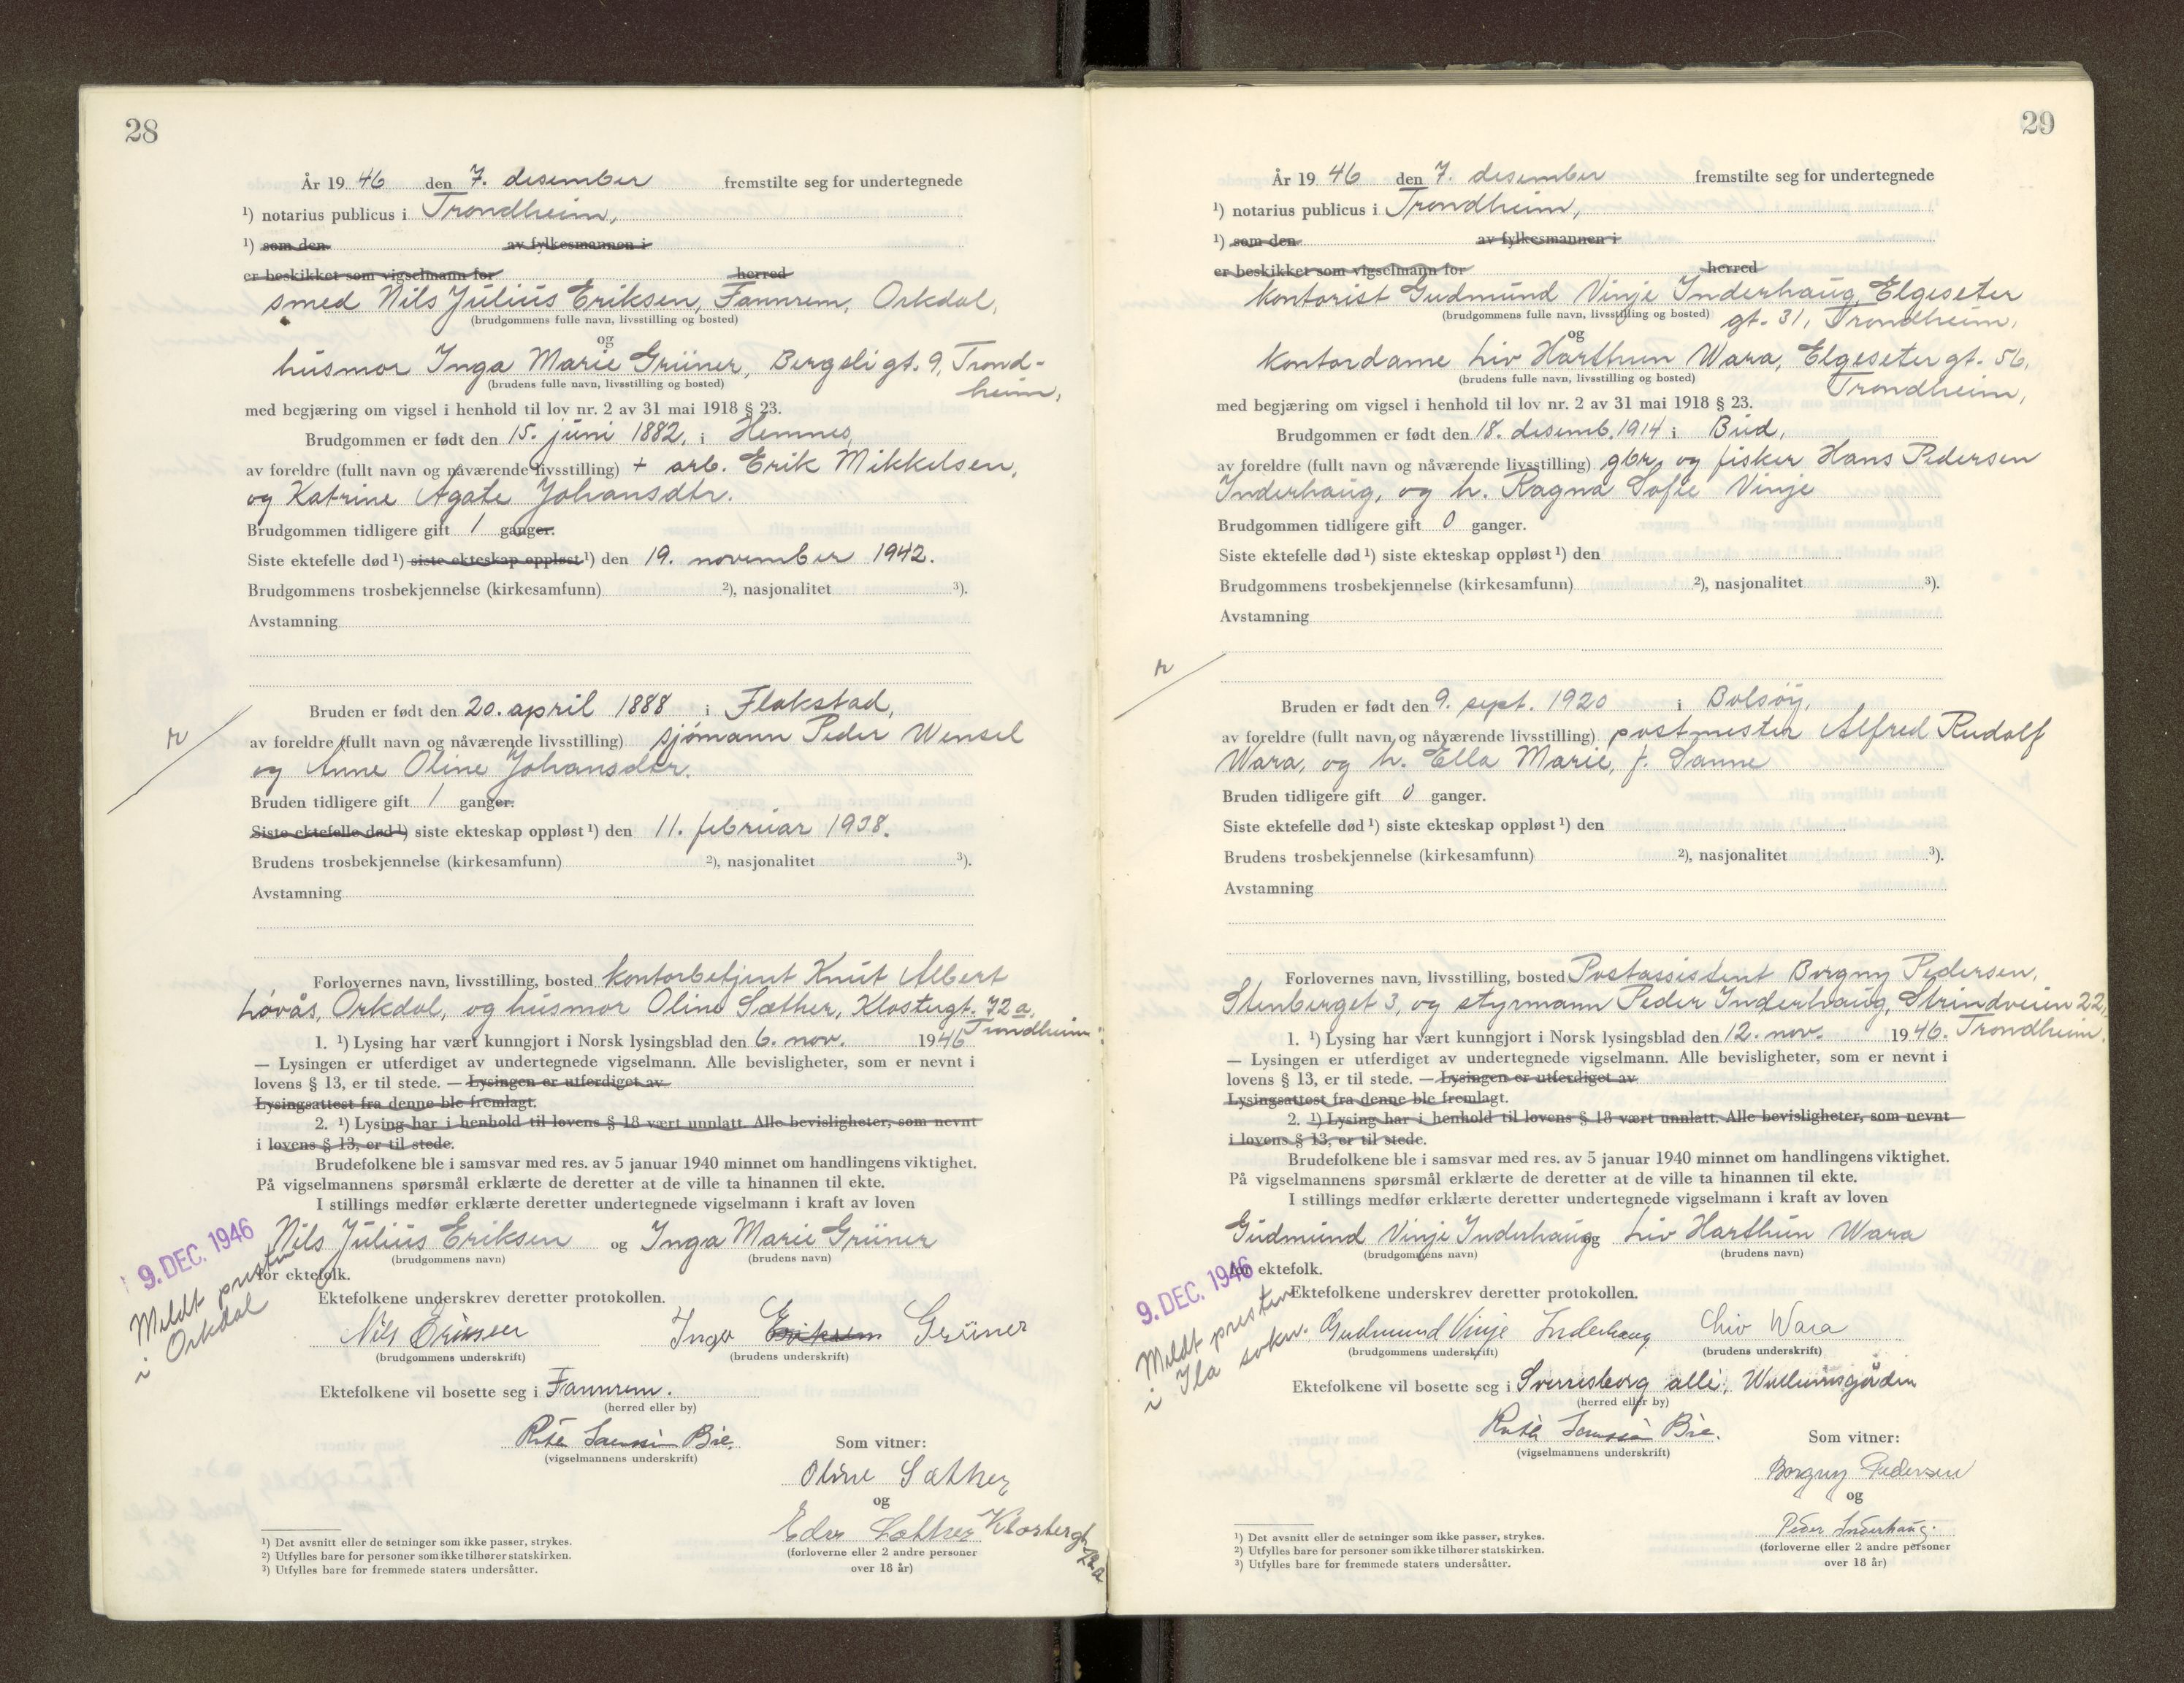 28
År 19 46 den 7. desember fremstilte seg for undertegnede
¹) notarius publicus i Trondheim,
¹) som den av fylkesmannen i
er beskikket som vigselmann for herred
smed Nils Julius Eriksen, Fannrem, Orkdal,
(brudgommens fulle navn, livsstilling og bosted)
og
husmor Inga Marie Grüner, Bergsligt. 9, Trond-
heim,
(brudens fulle navn, livsstilling og bosted)
med begjæring om vigsel i henhold til lov nr. 2 av 31 mai 1918 § 23.
Brudgommen er født den 15. juni 1882, i Hemnes,
av foreldre (fullt navn og nåværende livsstilling) + arb. Erik Mikkelsen,
og Katrine Agate Johansdtr.
Brudgommen tidligere gift 1 ganger.
Siste ektefelle død ¹) siste ekteskap oppløst ¹) den 19. november 1942.
Brudgommens trosbekjennelse (kirkesamfunn) ²), nasjonalitet ³).
Avstamning
Bruden er født den 20. april 1888 i Flakstad,
av foreldre (fullt navn og nåværende livsstilling) sjømann Peder Wensel
og Anne Oline Johansdtr.
Bruden tidligere gift 1 ganger.
Siste ektefelle død ¹) siste ekteskap oppløst ¹) den 11. februar 1938.
Brudens trosbekjennelse (kirkesamfunn) ²), nasjonalitet ³).
Avstamning
Forlovernes navn, livsstilling, bosted kontorbetjent Knut Albert
Løvås, Orkdal, og husmor Oline Sæther, Klostergt. 72 a,
Trondheim.
1. ¹) Lysing har vært kunngjort i Norsk lysingsblad den 6. nov. 1946
— Lysingen er utferdiget av undertegnede vigselmann. Alle bevisligheter, som er nevnt i
lovens § 13, er til stede. — Lysingen er utferdiget av
Lysingsattest fra denne ble fremlagt.
2. ¹) Lysing har i henhold til lovens § 18 vært unnlatt. Alle bevisligheter, som nevnt
i lovens § 13, er til stede.
Brudefolkene ble i samsvar med res. av 5 januar 1940 minnet om handlingens viktighet.
På vigselmannens spørsmål erklærte de deretter at de ville ta hinannen til ekte.
I stillings medfør erklærte deretter undertegnede vigselmann i kraft av loven
Nils Julius Eriksen og Inga Marie Grüner
(brudgommens navn) (brudens navn)
for ektefolk.
9. DEC. 1946
Meldt presten
i Orkdal
Ektefolkene underskrev deretter protokollen.
Nils Eriksen Inga Eriksen Grüner
(brudgommens underskrift) (brudens underskrift)
Ektefolkene vil bosette seg i Fannrem.
(herred eller by)
Bie.
(vigselmannens underskrift)
Som vitner:
Oline Sæther
og
Sæther Klostergt
72 a
(forloverne eller 2 andre personer
over 18 år)
¹) Det avsnitt eller de setninger som ikke passer, strykes.
²) Utfylles bare for personer som ikke tilhører statskirken.
³) Utfylles bare for fremmede staters undersåtter.
29
År 19 46 den 7. desember fremstilte seg for undertegnede
¹) notarius publicus i Trondheim,
¹) som den av fylkesmannen i
er beskikket som vigselmann for herred
kontorist Gudmund Vinje Inderhaug, Elgeseter
gt. 31, Trondheim,
(brudgommens fulle navn, livsstilling og bosted)
og
kontordame Liv Harthun Wara, Elgeseter gt. 56,
Trondheim,
(brudens fulle navn, livsstilling og bosted)
med begjæring om vigsel i henhold til lov nr. 2 av 31 mai 1918 § 23.
Brudgommen er født den 18. desemb. 1914 i Bud,
av foreldre (fullt navn og nåværende livsstilling) gbr. og fisker Hans Pedersen
Inderhaug, og h. Ragna Sofie Vinje
Brudgommen tidligere gift 0 ganger.
Siste ektefelle død ¹) siste ekteskap oppløst ¹) den
Brudgommens trosbekjennelse (kirkesamfunn) ²), nasjonalitet ³).
Avstamning
Bruden er født den 9. sept. 1920 i Bolsøy,
av foreldre (fullt navn og nåværende livsstilling) postmester Alfred Rudolf
Wara, og h. Ella Marie, f. Sanne
Bruden tidligere gift 0 ganger.
Siste ektefelle død ¹) siste ekteskap oppløst ¹) den
Brudens trosbekjennelse (kirkesamfunn) ²), nasjonalitet ³).
Avstamning
Forlovernes navn, livsstilling, bosted Postassistent Borgny Pedersen,
Stenberget 3, og styrmann Peder Inderhaug, Strindveien 22,
Trondheim.
1. ¹) Lysing har vært kunngjort i Norsk lysingsblad den 12. nov. 1946.
— Lysingen er utferdiget av undertegnede vigselmann. Alle bevisligheter, som er nevnt i
lovens § 13, er til stede. — Lysingen er utferdiget av
Lysingsattest fra denne ble fremlagt.
2. ¹) Lysing har i henhold til lovens § 18 vært unnlatt. Alle bevisligheter, som nevnt
i lovens § 13, er til stede.
Brudefolkene ble i samsvar med res. av 5 januar 1940 minnet om handlingens viktighet.
På vigselmannens spørsmål erklærte de deretter at de ville ta hinannen til ekte.
I stillings medfør erklærte deretter undertegnede vigselmann i kraft av loven
Gudmund Vinje Inderhaug og Liv Harthun Wara
(brudgommens navn) (brudens navn)
for ektefolk.
9. DEC. 1946
Meldt presten
i Ila sokn.
Ektefolkene underskrev deretter protokollen.
Gudmund Vinje Inderhaug Liv Wara
(brudgommens underskrift) (brudens underskrift)
Ektefolkene vil bosette seg i Sverresborg allé,
(herred eller by)
Bie.
(vigselmannens underskrift)
Som vitner:
Borgny Pedersen
og
Peder Inderhaug.
(forloverne eller 2 andre personer
over 18 år)
¹) Det avsnitt eller de setninger som ikke passer, strykes.
²) Utfylles bare for personer som ikke tilhører statskirken.
³) Utfylles bare for fremmede staters undersåtter.